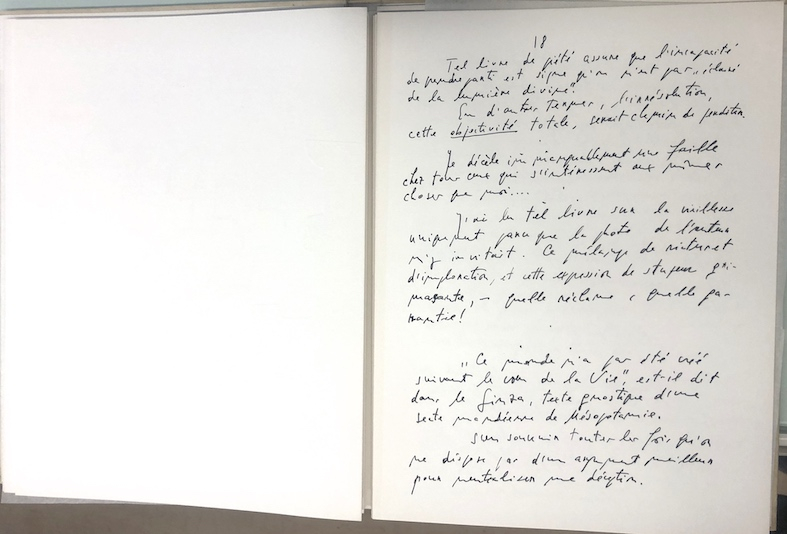 18
Tel livre de piété assure que l'incapacité
de prendre parti est signe qu'on n'est pas „éclairé
de la lumière divine".
En d'autres termes, l'irrésolution,
cette objectivité totale, serait chemin de perdition.
Je décèle immanquablement une faille
chez tous ceux qui s'intéressent aux mêmes
choses que moi....
J'ai lu tel livre sur la vieillesse
uniquement parce que la photo de l'auteur
m'y invitait. Ce mélange de rictus et
d'imploration, et cette expression de stupeur gri-
maçante, – quelle réclame, quelle ga-
rantie!
„Ce monde n'a pas été créé
suivant le vœu de la Vie", est-il dit
dans le Ginza, texte gnostique d'une
secte mandéenne de Mésopotamie.
S'en souvenir toutes les fois qu'on
ne dispose pas d'un argument meilleur
pour neutraliser une déception.